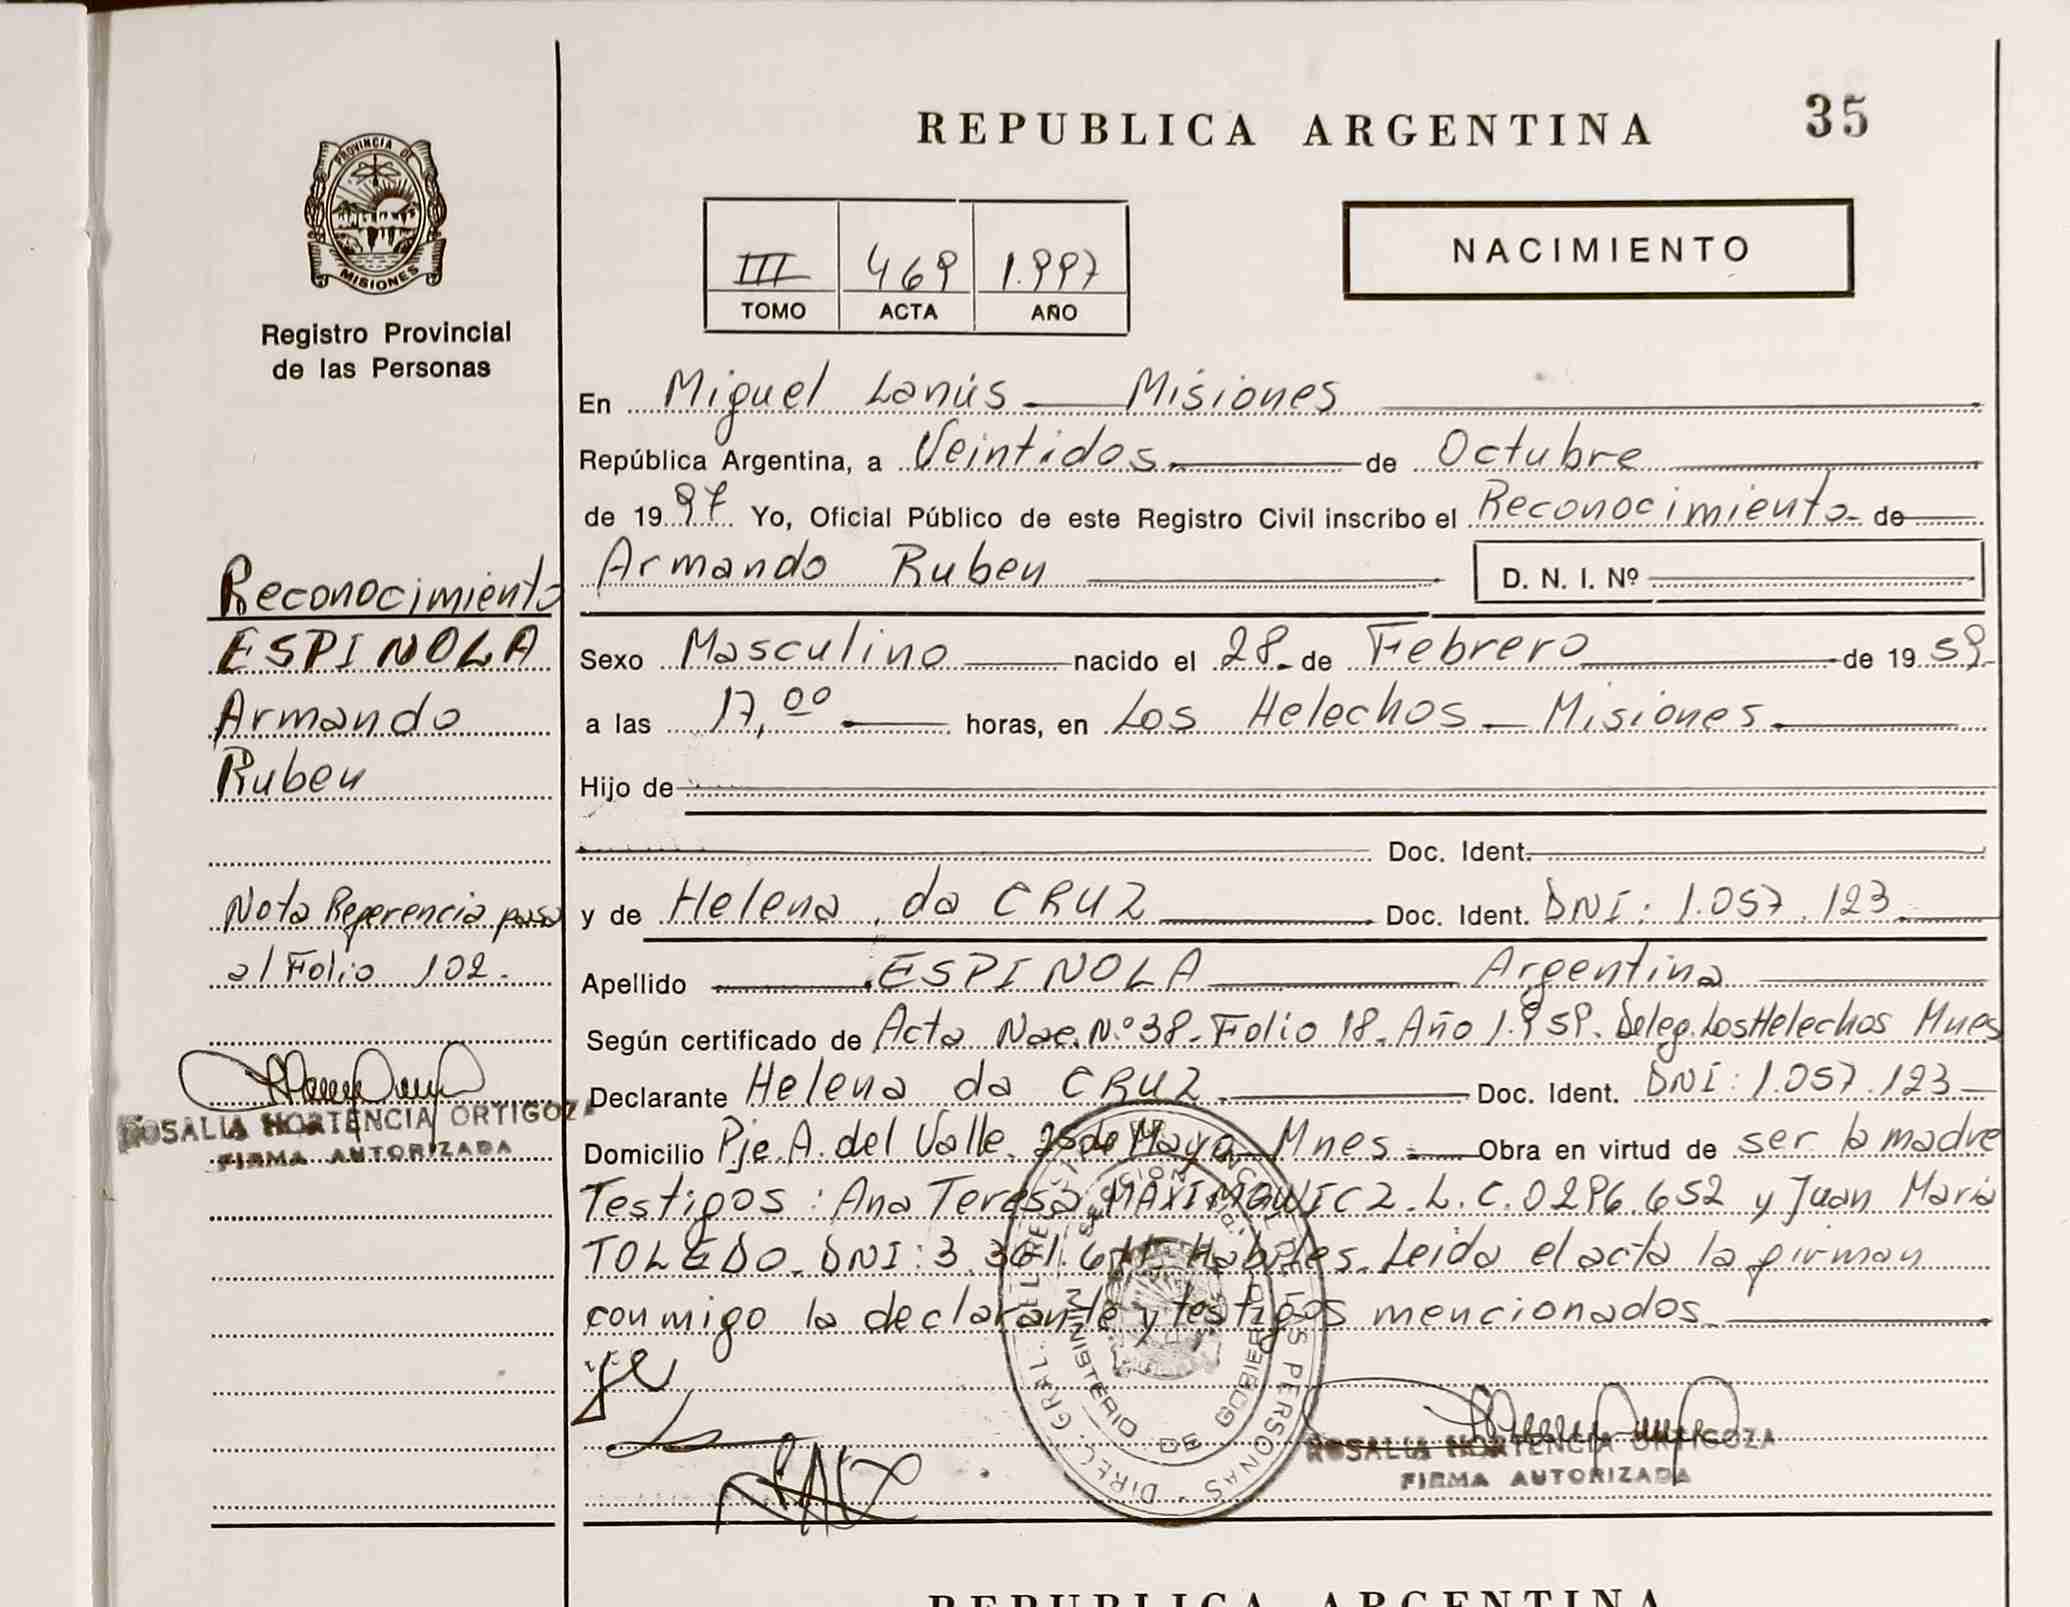 REPUBLICA ARGENTINA
35
PROVINCIA DE
MISIONES
Registro Provincial
de las Personas
III 469 1.997
TOMO ACTA AÑO
NACIMIENTO
En Miguel Lanús Misiones
República Argentina, a Veintidos de Octubre
de 1997 Yo, Oficial Público de este Registro Civil inscribo el Reconocimiento de
Armando Ruben D. N. I. Nº
Sexo Masculino nacido el 28 de Febrero de 1959
a las 17,00 horas, en Los Helechos - Misiones
Hijo de
Doc. Ident.
y de Helena da CRUZ Doc. Ident. DNI: 1.057.123
Apellido ESPINOLA Argentina
Según certificado de Acta Nac. N.º 38 - Folio 18 - Año 1.959. Deleg. Los Helechos Mnes
Declarante Helena da CRUZ Doc. Ident. DNI: 1.057.123
Domicilio Pje. A. del Valle. 25 de Mayo Mnes Obra en virtud de ser la madre
Testigos: Ana Teresa L.C. 0.296.652 y Juan Maria
TOLEDO. DNI: 3. Habiles. Leida el acta la firman
conmigo la declarante y testigos mencionados
Reconocimiento
ESPINOLA
Armando
Ruben
Nota Referencia pasa
al Folio 102.
ROSALIA HORTENCIA ORTIGOZA
FIRMA AUTORIZADA
MINISTERIO DE GOBIERNO
ROSALIA HORTENCIA ORTIGOZA
FIRMA AUTORIZADA
REPUBLICA ARGENTINA